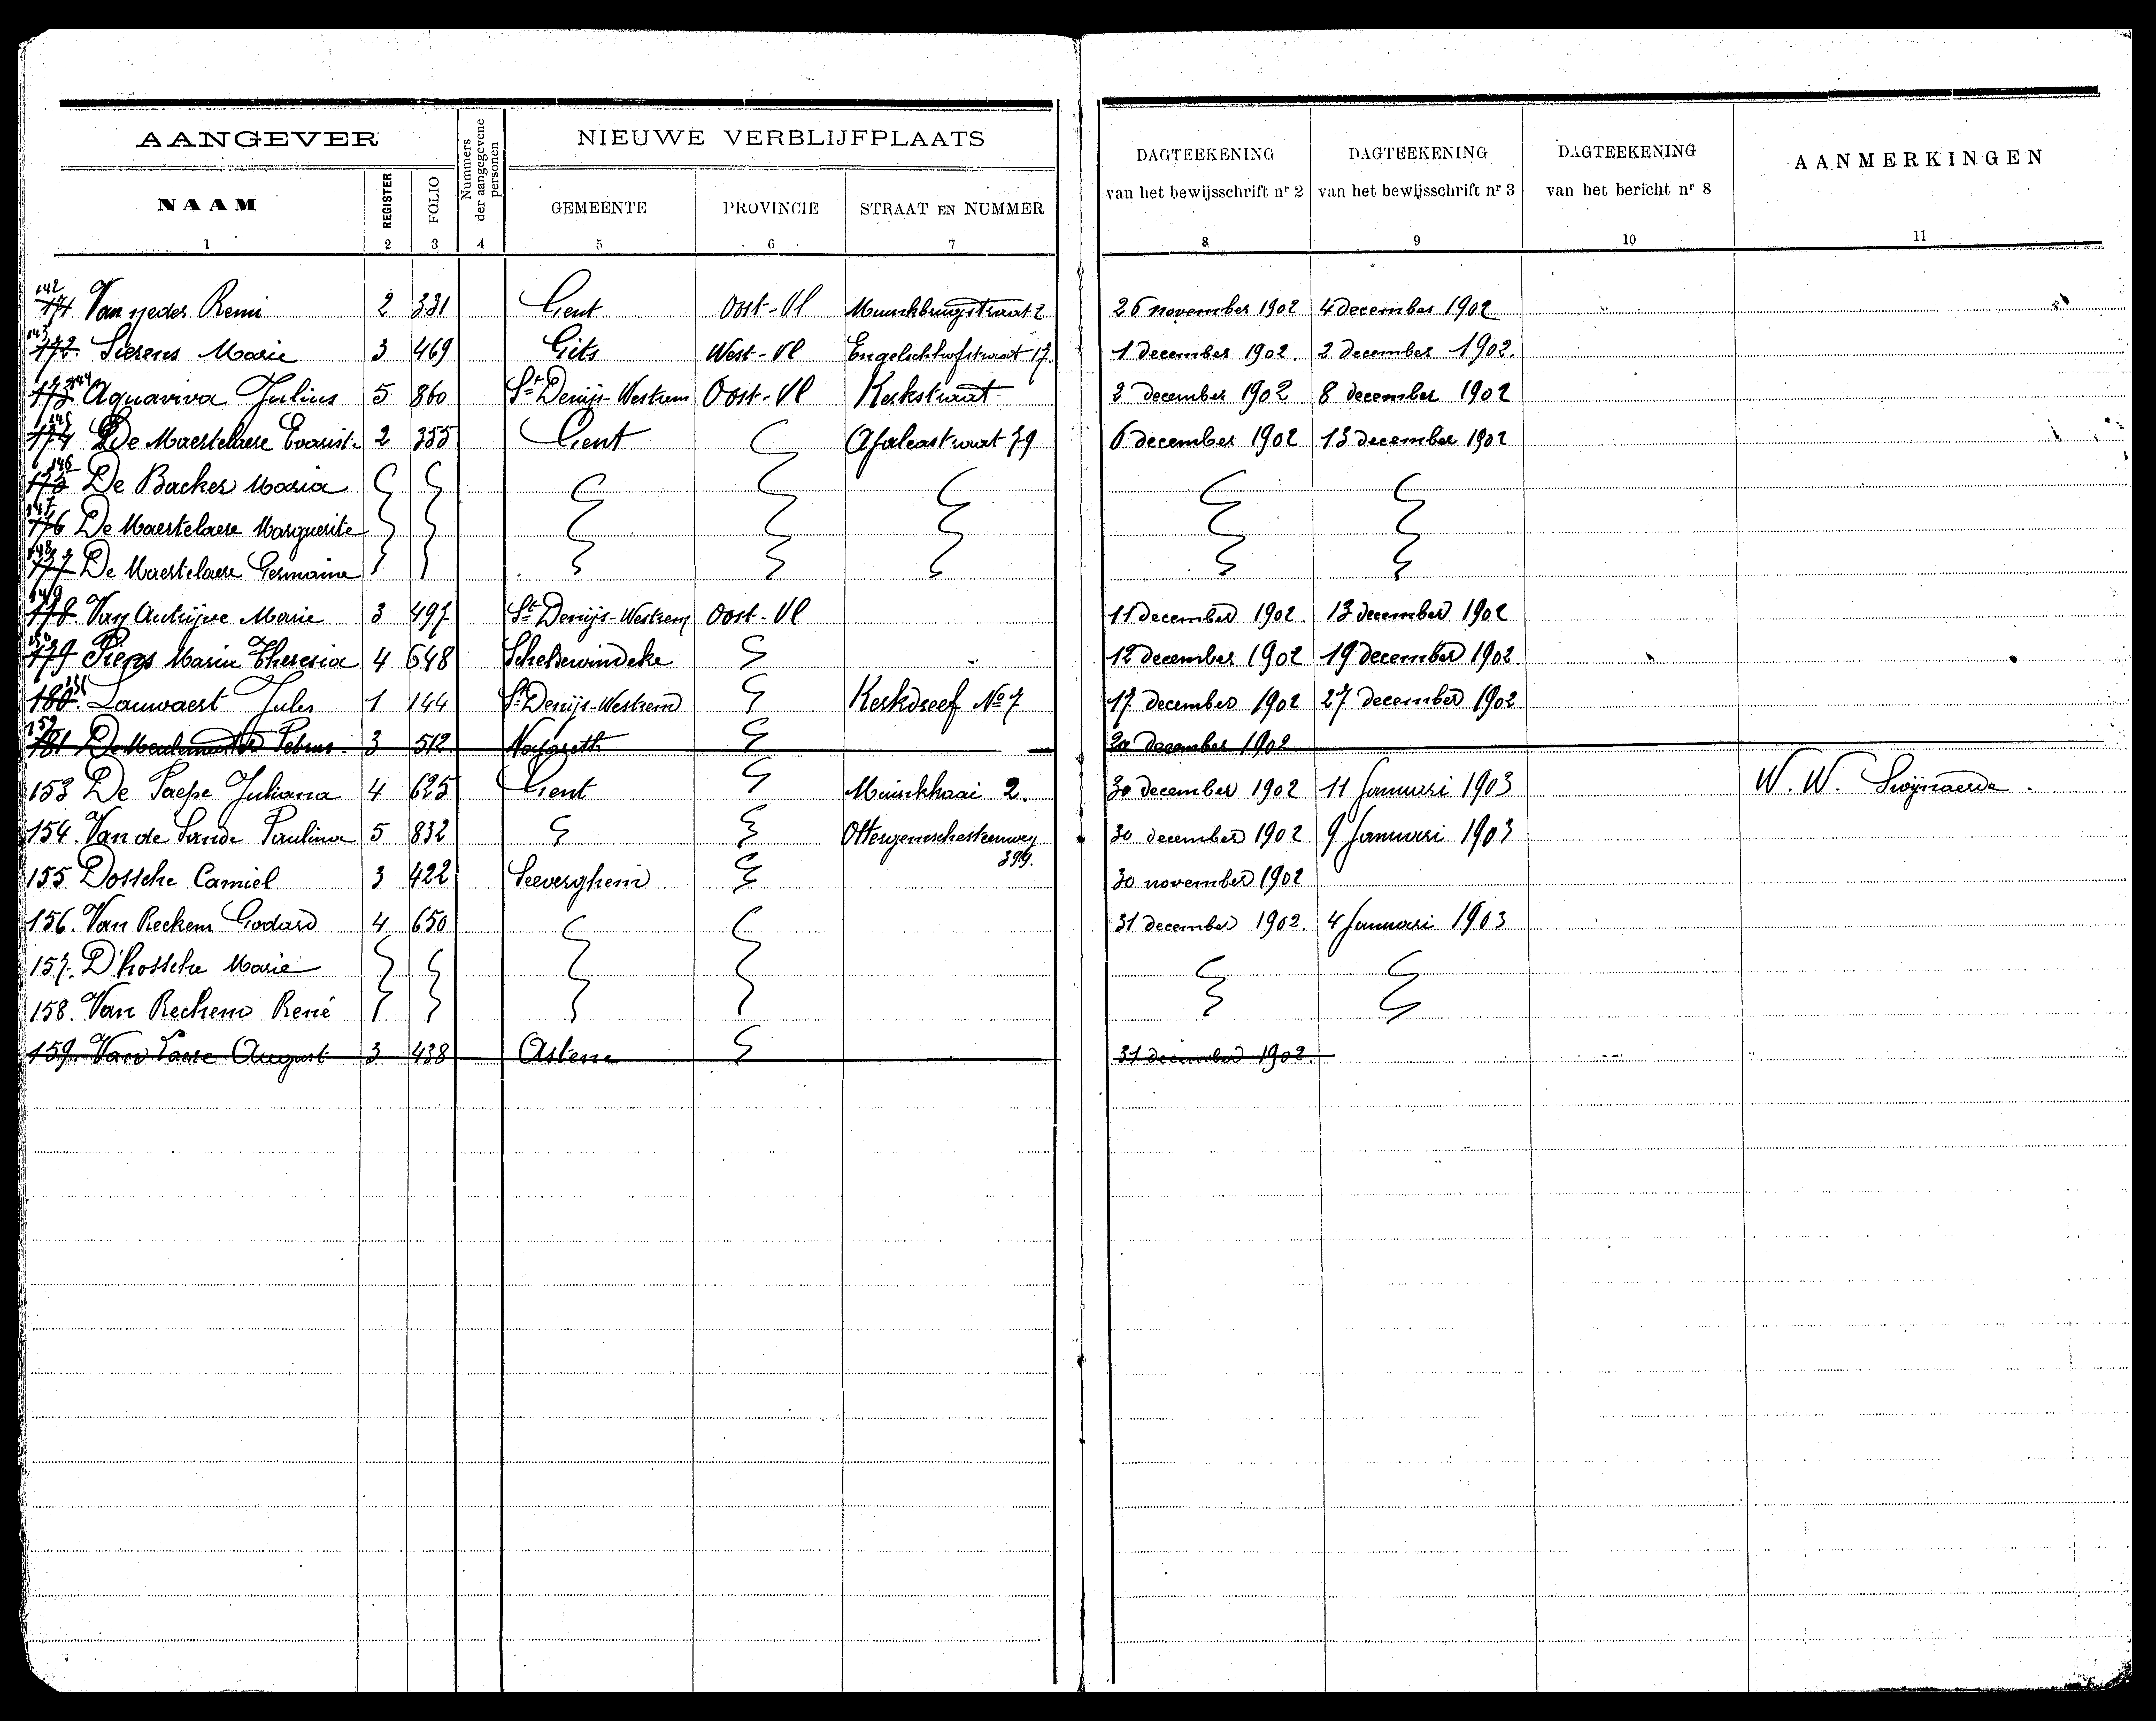 AANGEVER
Nummers der aangegevene personen
NIEUWE VERBLIJFPLAATS
DAGTEEKENING van het bewijsschrift nr 2
DAGTEEKENING van het bewijsschrift nr 3
DAGTEEKENING van het bericht nr 8
AANMERKINGEN
NAAM REGISTER FOLIO GEMEENTE PROVINCIE STRAAT EN NUMMER
1 2 3 4 5 6 7 8 9 10 11
142 171. Remi 2 331 Gent Oost-Vl 26 november 1902 4 december 1902
143 172. Sierens Marie 3 469 Gits West-Vl Engelschhofstraat 17. 1 december 1902. 2 december 1902.
173 144 Aquaviva Julius 5 860 St Denijs-Westrem Oost-Vl Kerkstraat 2 december 1902 8 december 1902
145 174 De Maertelaere Evarist 2 355 Gent Azaleastraat 39 6 december 1902 13 december 1902
146 175 De Backer Maria
147 176 De Maertelaere Marguerite
148 177 De Maertelaere Germaine
149 178. Van Autrijve Marie 3 497 St Denijs-Westrem Oost-Vl 11 december 1902. 13 december 1902
150 179 Piens Maria Theresia 4 648 Scheldewindeke 12 december 1902 19 december 1902
180. 151 Lauwaert Jules 1 144 St Denijs-Westrem Kerkdreef No 7 17 december 1902 27 december 1902
152 181 De Meulemeester Petrus 3 512 Nazareth 20 december 1902
153 De Paepe Juliana 4 625 Gent Muinkkaai 2. 30 december 1902 11 Januari 1903 W. W. Swijnaerde.
154. Van de Sande Paulina 5 832 Ottergemschesteenweg 399. 30 december 1902 9 Januari 1903
155 Dossche Camiel 3 422 Seeverghem 30 november 1902
156. Van Reckem Godard 4 650 31 december 1902. 4 Januari 1903
157. D'hossche Marie
158. Van Reckem René
159. August 3 438 Astene 31 december 1902.